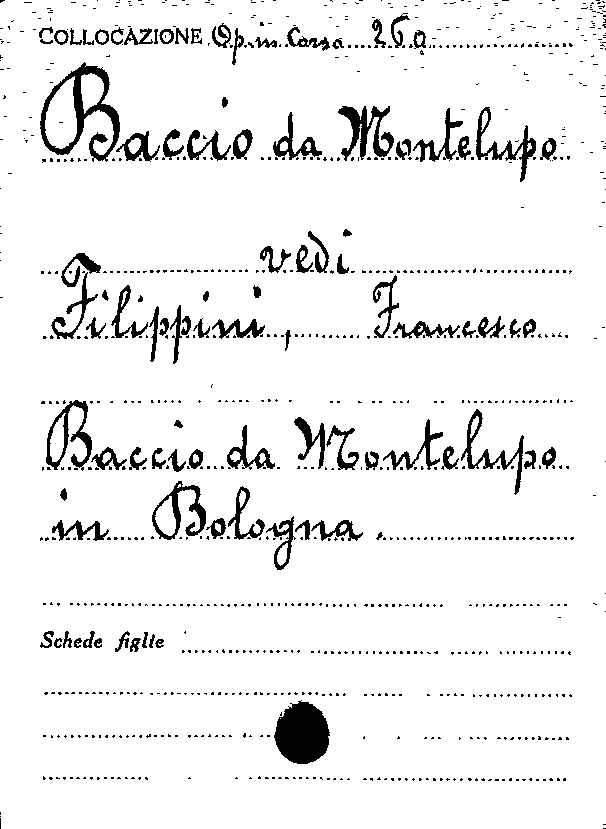 COLLOCAZIONE Op. in Cassa 260
Baccio da Montelupo
vedi
Filippini, Francesco
Baccio da Montelupo
in Bologna.
Schede figlie